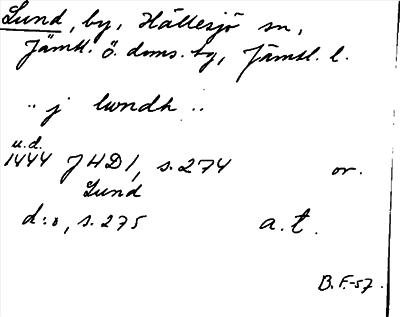 Lund, by, Hällesjö sn,
Jämtl. ö. doms. tg, Jämtl. l.
.. j lwndh ..
u.d.
1444 JHD 1, s. 274 or.
Lund
d:o, s. 275 a.t.
B.F.-57.